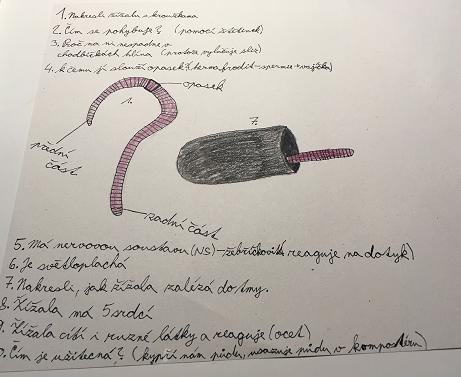 1. Nakresli žížalu s kroužkama
2. Čím se pohybuje? (pomocí štětinek)
3. Proč na ni nespadne v
chodbičkách hlína (protože vylučuje sliz)
4. k čemu jí slouží opasek? (hermafrodit-spermie+vajíčka)
opasek
1.
7.
přední
část
zadní část
5. Má nervovou soustavu (NS) - žebříčkovitá reaguje na dotyk)
6. Je světloplachá
7. Nakresli, jak žížala zalézá do tmy.
8. Žížala má 5 srdcí
9. Žížala cítí i ruzné látky a reaguje (ocet)
0. Čím je užitečná? (kypří nám půdu, půdu v kompostéru)